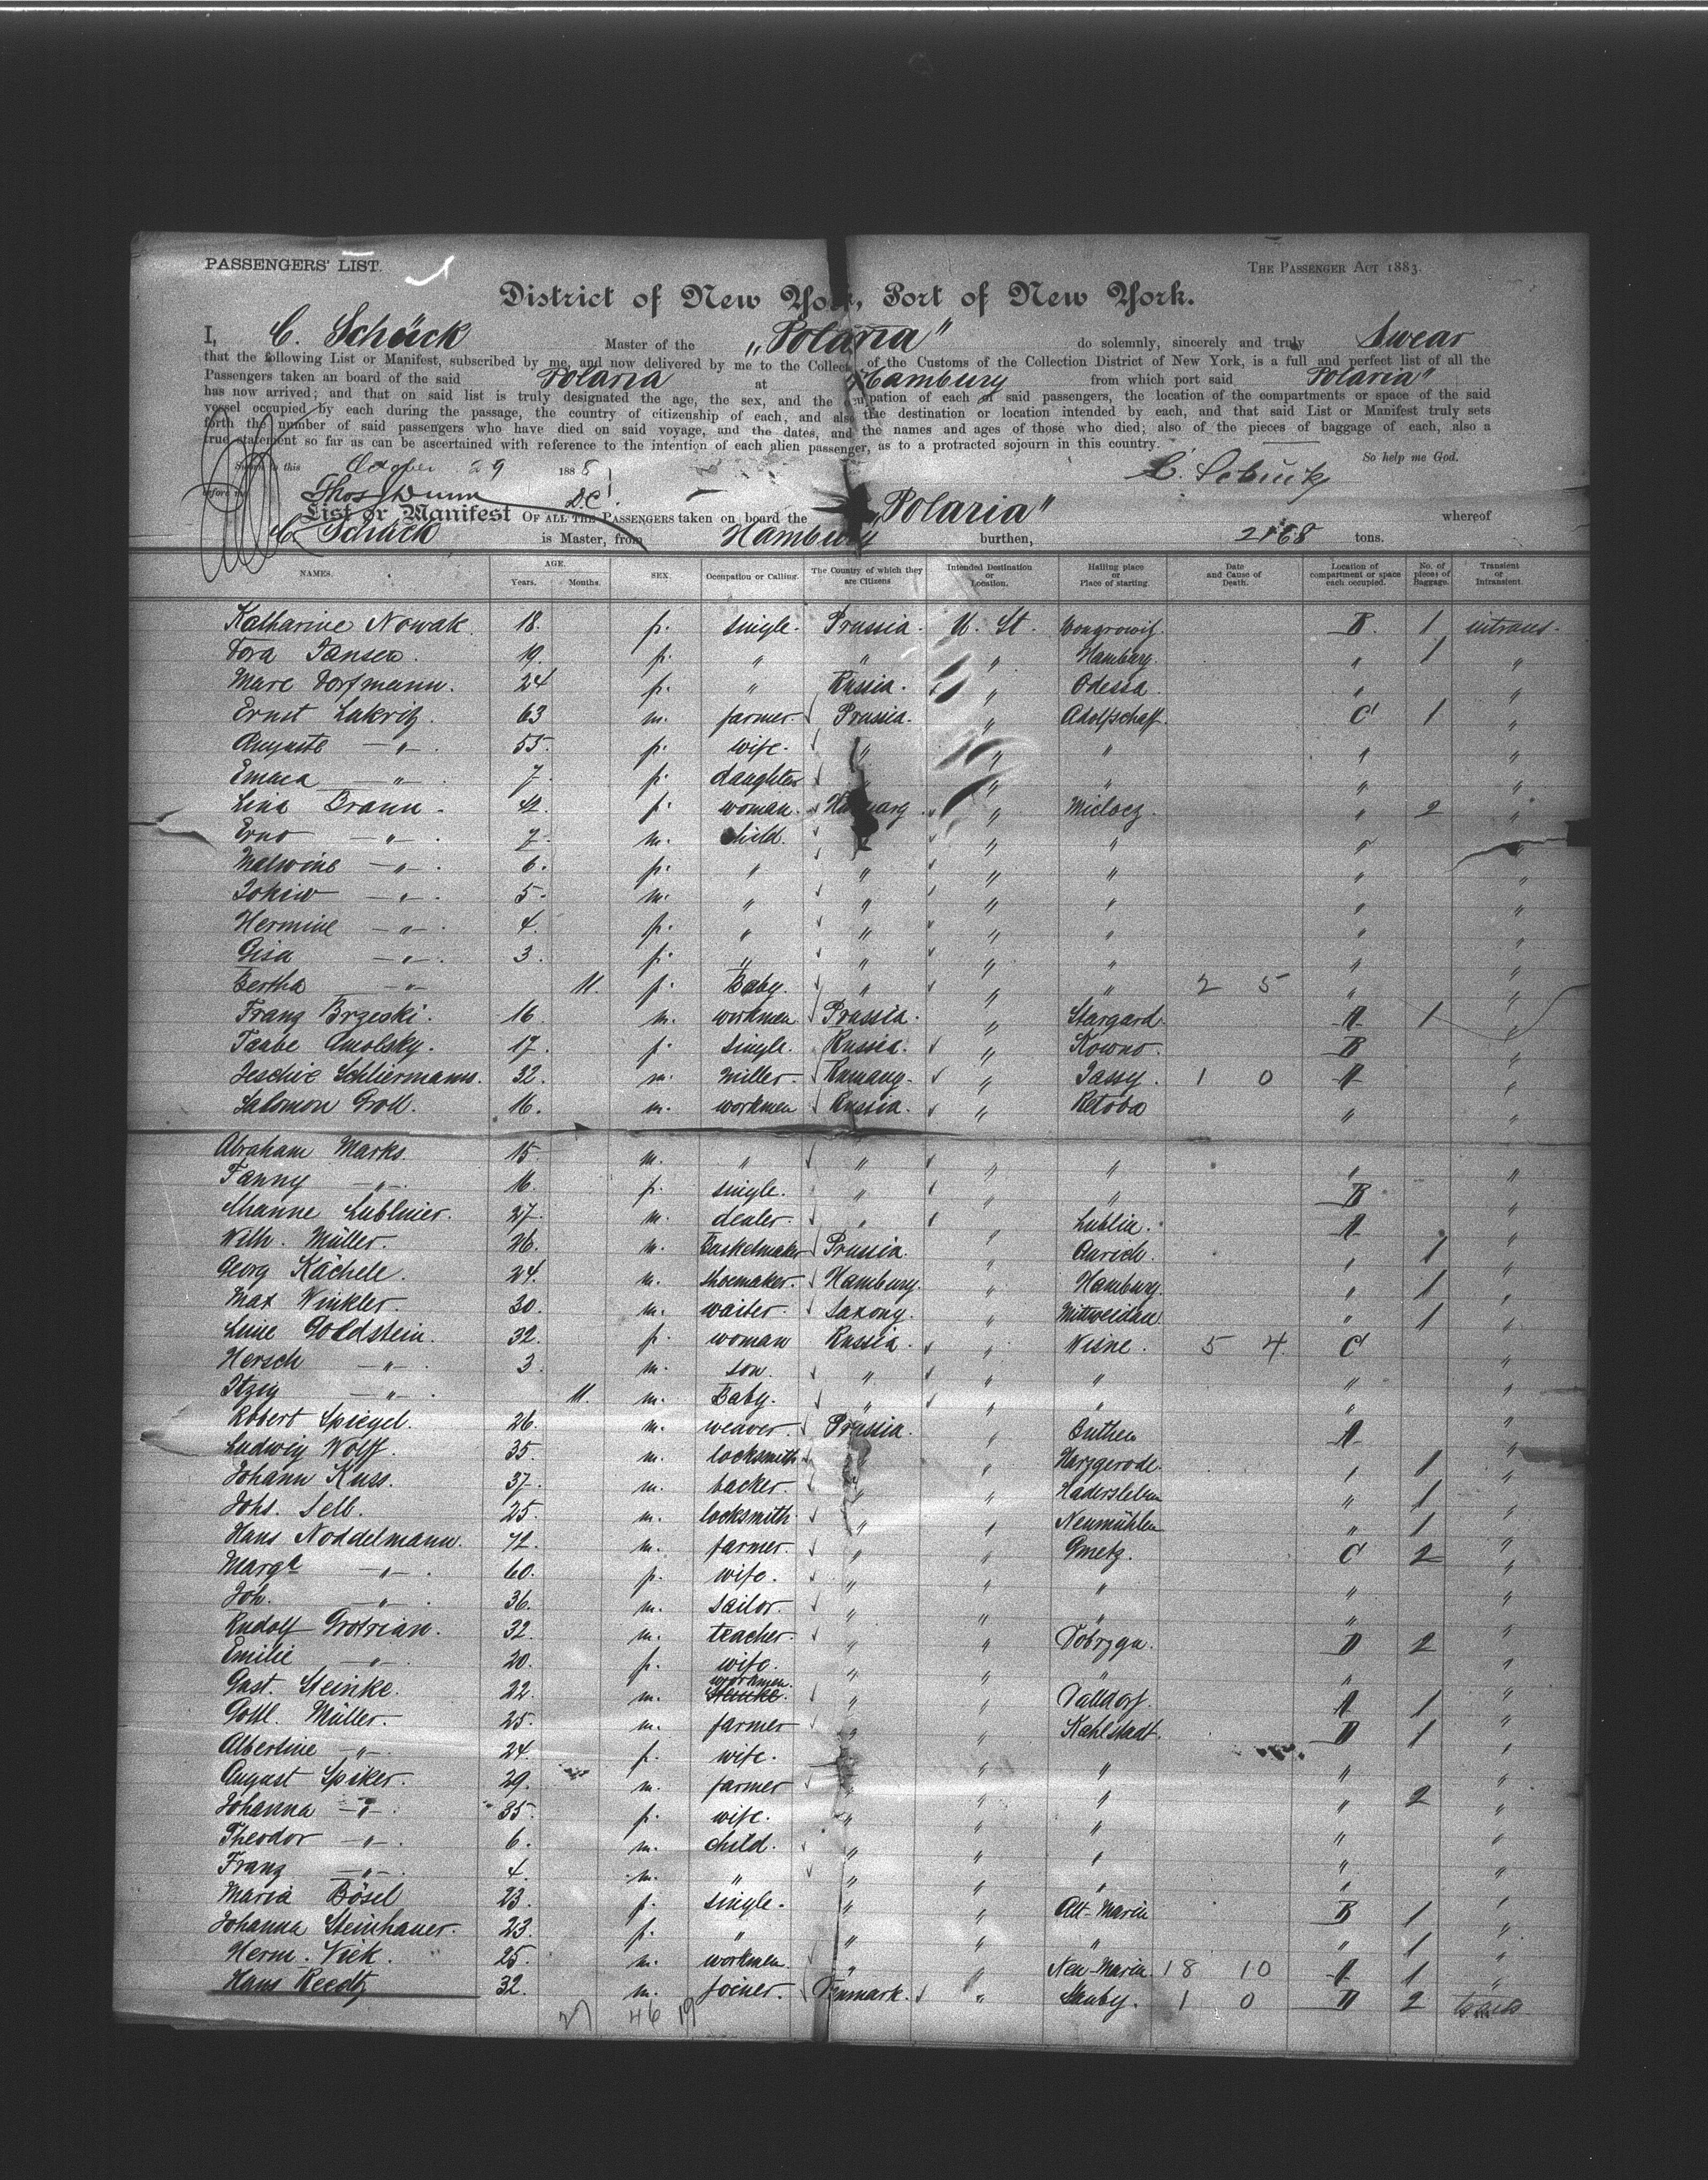 PASSENGERS' LIST.
THE PASSENGER ACT 1883.
District of New York, Port of New York.
I, C. Schück Master of the „Polaria" do solemnly, sincerely and truly Swear
that the following List or Manifest, subscribed by me, and now delivered by me to the Collect of the Customs of the Collection District of New York, is a full and perfect list of all the
Passengers taken an board of the said Polaria at Hamburg from which port said Polaria"
has now arrived; and that on said list is truly designated the age, the sex, and the cupation of each of said passengers, the location of the compartments or space of the said
vessel occupied by each during the passage, the country of citizenship of each, and also the destination or location intended by each, and that said List or Manifest truly sets
forth the number of said passengers who have died on said voyage, and the dates, and the names and ages of those who died; also of the pieces of baggage of each, also a
true statement so far as can be ascertained with reference to the intention of each alien passenger, as to a protracted sojourn in this country.
So help me God.
Sworn to this October 29 1888
C. Schück
before me Thos Dunn D.C.
List or Manifest OF ALL THE PASSENGERS taken on board the „Polaria" whereof
C. Schück is Master, from Hamburg burthen, 2168 tons.
NAMES. AGE. Years. Months. SEX. Occupation or Calling. The Country of which they are Citizens Intended Destination or Location. Hailing place or Place of starting. Date and Cause of Death. Location of compartment or space each occupied. No. of pieces of Baggage. Transient or Intransient.
Katharine Nowak. 18. f. single. Prussia. U. St. Wongrowitz. B. 1 intrans.
Dora Jansen. 19. f. " " " Hamburg. " 1 "
Marc Dorfmann. 24 f. " Russia. " Odessa. " "
Ernst Lakritz. 63 m. farmer. Prussia. " Adolfschaff. C 1 "
Auguste —"— 55. f. wife. " " " " "
Emma —"— 7. f. daughter " " " " "
Lina Braun. 42. f. woman. " Micloez. " 2 "
Erno —"— 7. m. child. " " " "
Malwine —"— 6. f. " " " " " "
—"— 5. m. " " " " " "
Hermine —"— 4. f. " " " " " "
Gisa —"— 3. f. " " " " " "
Bertha —"— 11. f. Baby. " " " 2 5 " "
Franz Brzeski. 16 m. workmen Prussia. " Stargard. A 1 "
Taube Amolsky. 17. f. single. Russia. " Kowno. B "
Jeschie Schliermanns. 32. m. Miller. " Jassy. 1 0 A "
Salomon Groll. 16. m. workmen Russia. " Retobo " "
Abraham Marks. 15. m. " " " " " "
Fanny —"— 16. f. single. " " " B "
Manne Lubliner. 27. m. dealer. " " Lublin. A "
Wilh. Müller. 26. m. Basketmaker Prussia. " Aurich. " 1 "
Georg Kächele. 24. m. shoemaker. Hamburg. " Hamburg. " 1 "
Max Winkler. 30. m. waiter. Saxony. " Mittweidau " 1 "
Line Goldstein. 32. f. woman Russia. " Wisne. 5 4. C "
Hersch —"— 3. m. son. " " " " "
Itzig —"— 11. m. Baby. " " " " "
Robert Spiegel. 26. m. weaver. Prussia. " Buthen A "
Ludwig Wolff. 35. m. locksmith " " Harzgerode. " 1 "
Johann Kuss. 37. m. backer. " " Hadersleben " 1 "
Johs. Selb. 25. m. locksmith. " " Neumühlen " 1 "
Hans Noddelmann. 72. m. farmer. " " Gmetz. C 2 "
Marga —"— 60. f. wife. " " " " "
Joh. —"— 36. m. sailor. " " " " "
Rudolf Grotrian. 32. m. teacher. " " Dobrzya. D 2 "
Emilie —"— 20. f. wife. " " " " "
Gust. Steinke. 22. m. workmen. " " Valldorf. A 1 "
Gottl. Müller. 25. m. farmer " " Kahlstadt. D 1 "
Albertine —"— 24. f. wife. " " " " "
August Spiker. 29. m. farmer " " " " 2 "
Johanna —"— 35. f. wife. " " " " "
Theodor —"— 6. m. child. " " " " "
Franz —"— 4. m. " " " " " "
Maria Bösel 23. f. single. " " Alt-Marin B 1 "
Johanna Steinhauer. 23. f. " " " " " 1 "
Herm. Vick. 25. m. workmen. " " Neu-Marin. 18 10 A 1 "
Hans Reedtz 32. m. joiner. Denmark. " Stauby. 1 0 D 2 trans
27 46 19